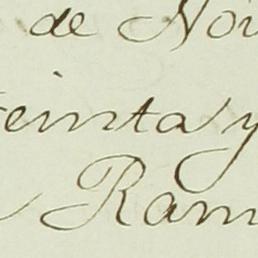 de Nov
einta y
Ram